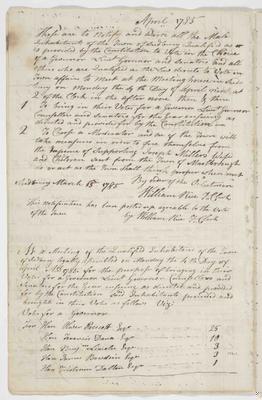 April 1785
These are to Notify and Warn all the Male
Inhabitants of the Town of Sudbury Qualified as
is provided by the Constitution to Vote in the Choice
of a Governor Lieut Governor and Senators And all
others who are Qualified as the Law directs to Vote in
Town affairs to meet at the Meeting house in Sud
bury on Monday the 4th Day of April next at
of the Clock in the after noon then & there
1 To bring in their Votes for a Governor Lieut Governor
Councellors and Senators for the year ensuing as
directed and provided for by the Constitution
2 To Chose a Moderator and see if the Town will
take measures in order to free themselves from
the expence of Supporting Joseph Millers Wife
and Children sent from the Town of Marlborough
or act as the Town shall think proper when met
Sudbury March 18th 1785 By Order of the Selectmen
William Rice Tn Clerk
This notification has been posted up agreeable to the Vote
of the Town
by William Rice Tn Clerk
At a Meeting of the Qualified Inhabitants of the Town
of Sudbury legally assembled on Monday the 4th day of
April AD 1785 for the purpose of bringing in their
Votes for a Governor Lieut Governor Councellors and
Senators for the Year ensuing as directed and provided
for by the Constitution said Inhabitants proceeded and
brought in their Votes as follows Viz
Votes for a Governor
For Hon Esqr 25
Hon Francis Dana Esqr 10
Hon Benjn Lincoln Esqr 3
Hon James Bowdoin Esqr 3
Hon Tristram Dalton Esqr 1